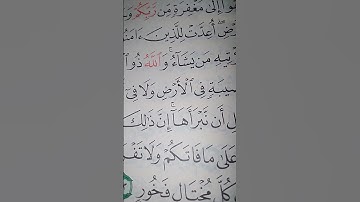 إِلَىٰ مَغْفِرَةٍ مِّن رَّبِّكُمْ
أُعِدَّتْ لِلَّذِينَ ءَامَنُ
مَن يَشَآءُ ۚ وَٱللَّهُ ذُو ٱ
فِى ٱلْأَرْضِ وَلَا فِىٓ
أَن نَّبْرَأَهَآ ۚ إِنَّ ذَٰلِكَ
عَلَىٰ مَا فَاتَكُمْ وَلَا تَفْ
كُلَّ مُخْتَالٍ فَخُورٍ